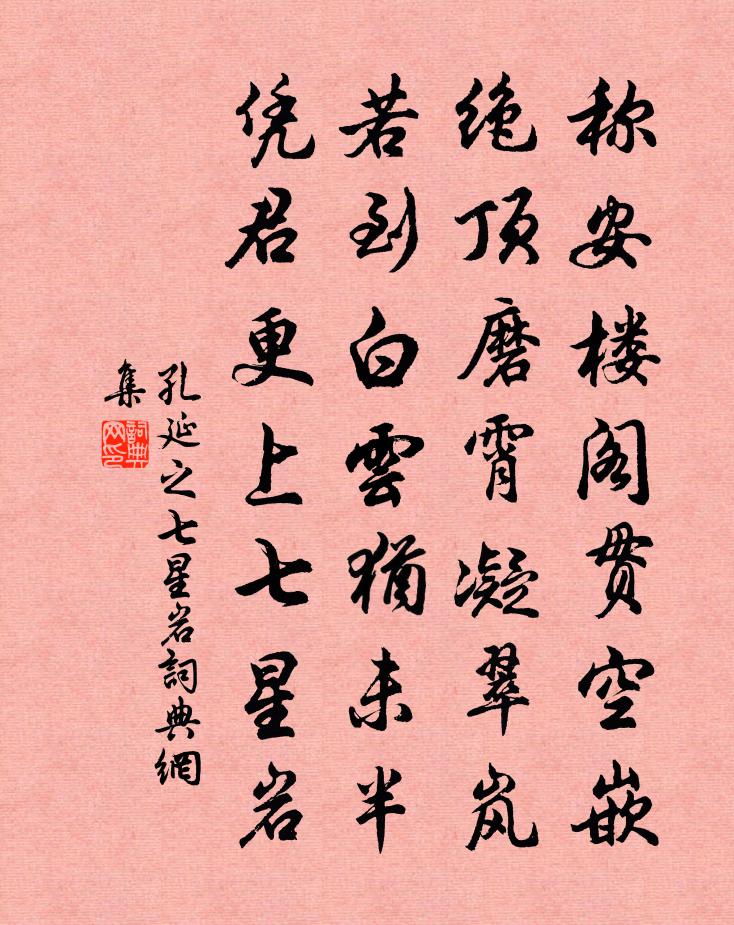 称安楼阁贯空嵌
绝顶磨霄凝翠岚
若到白雲猶未半
凭君更上七星岩
孔延之七星岩詞典網
集
詞典网印